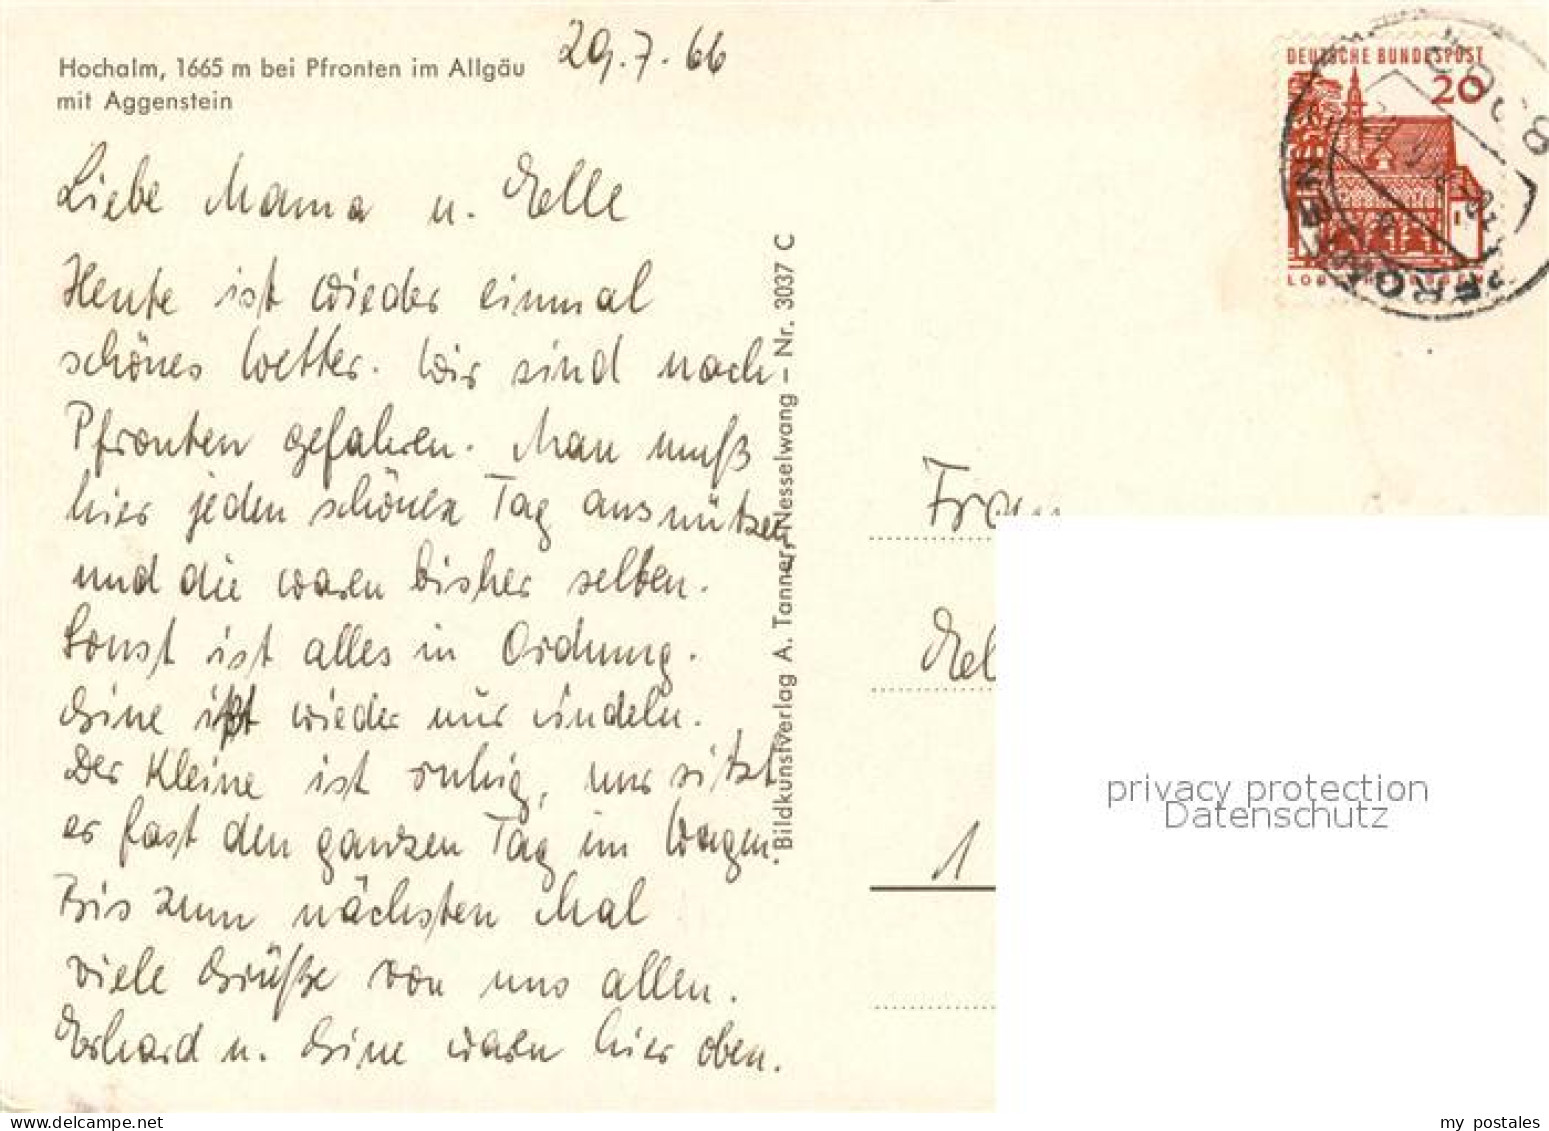 Hochalm, 1665 m bei Pfronten im Allgäu
mit Aggenstein
29.7.66
Liebe Mama u. Elle
Heute ist wieder einmal
schönes Wetter. Wir sind nach
Pfronten gefahren. Man muß
hier jeden schönen Tag ausnützen
und die waren bisher selten.
Sonst ist alles in Ordnung.
Gine ißt wieder nur Nudeln.
Der Kleine ist ruhig, nur sitzt
er fast den ganzen Tag im Wagen.
Bis zum nächsten Mal
viele Grüße von uns allen.
Erhard u. Gine waren hier oben.
Bildkunstverlag A. Tanner, Nesselwang – Nr. 3037 C
DEUTSCHE BUNDESPOST
20
PFRONTEN
Frau
1
privacy protection
Datenschutz
my postales